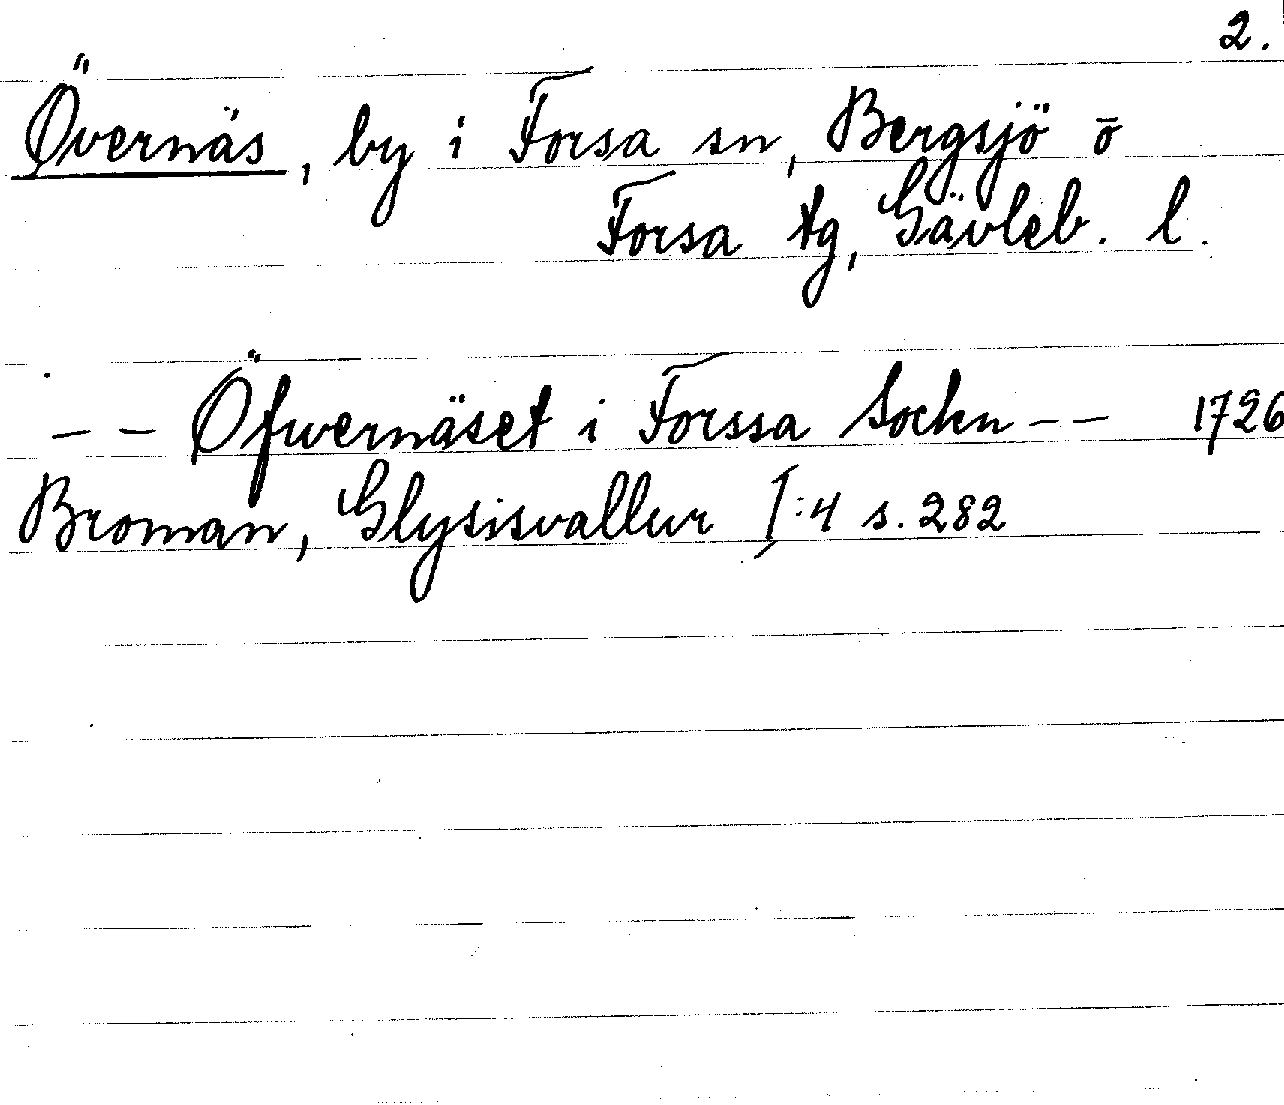 2.
Övernäs, by i Forsa sn, Bergsjö o
Forsa tg, Gävleb. l.
-- Öfwernäset i Forssa Sockn -- 1726
Broman, Glysisvallur I:4 s. 282